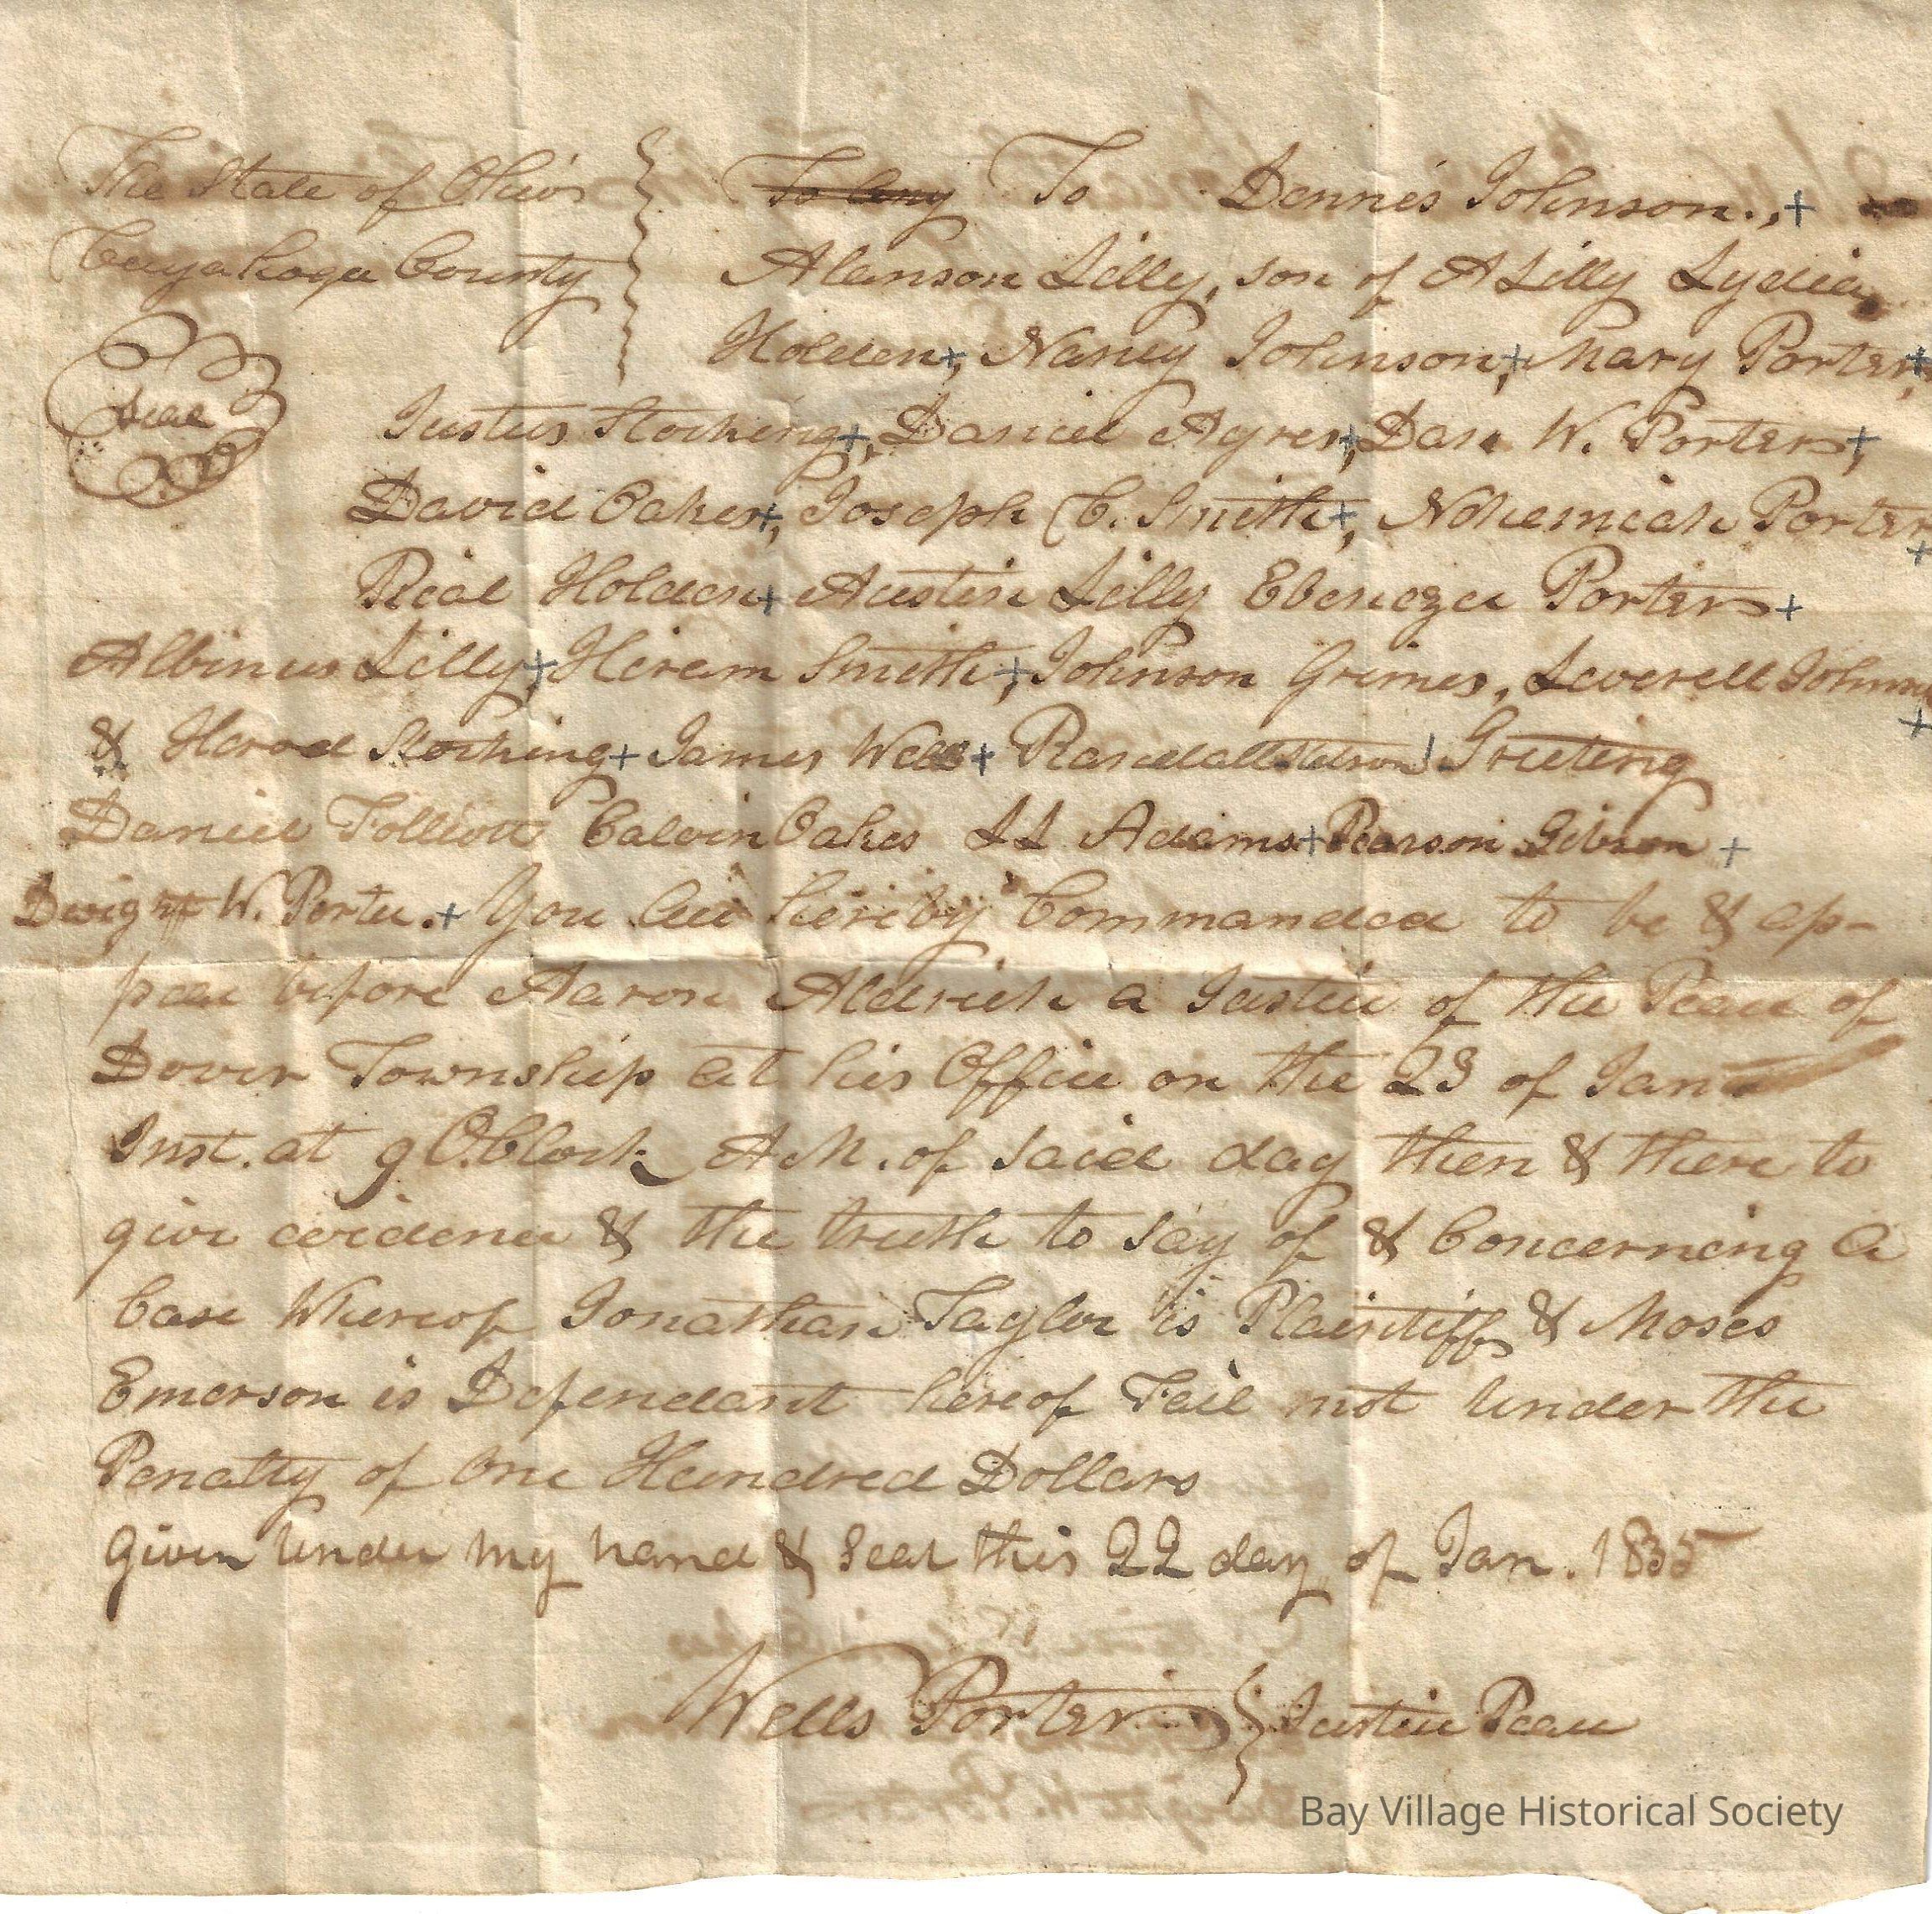 The State of Ohio } To any To Dennis Johnson., +
Cuyahoga County } Alanson Lilly, son of A Lilly Lydia
Holden+, Nancy Johnson+, Mary Porter+,
Seal
Justus Stocking+, Daniel Ayres+, Dan W. Porter+,
David Oakes+, Joseph C. Smith+, Nehemiah Porter +
Rial Holden+ Austin Lilly Ebenezer Porter +
Albinus Lilly+, Hiram Smith+, Johnson Grimes, Leverett Johnson +
& Harod Stocking+ James Well + Randall Greeting
Daniel Folliott Calvin Oakes LL Adams+ Pearson Gibson +
Dwight W. Porter.+ You are hereby Commanded to be & ap-
pear before Aaron Aldrich a Justice of the Peace of
Dover Township at his Office on the 23 of Jan
Inst. at 9 O.Clock A M. of said day then & there to
give evidence & the truth to say of & Concerning a
Case Whereof Jonathan Taylor is Plaintiff & Moses
Emerson is Defendant hereof Fail not under the
Penalty of One Hundred Dollars
Given under my hand & Seal this 22 day of Jan. 1835
Wells Porter } Justice Peace
Bay Village Historical Society